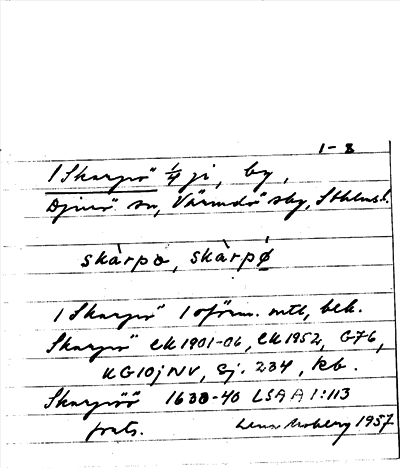 1-8
1 Skarpö ¼ ji, by,
Djurö sn, Värmdö sby, Sthlms l.
skàrpə, skàrpǿ
1 Skarpö 1 oförm. mtl, bek.
Skarpö EK 1901-06, EK 1952, G76,
KG 10jNV, Sj. 234, Rb.
Skarpöö 1638-40 LSA A1:113
forts. Lena Moberg 1957